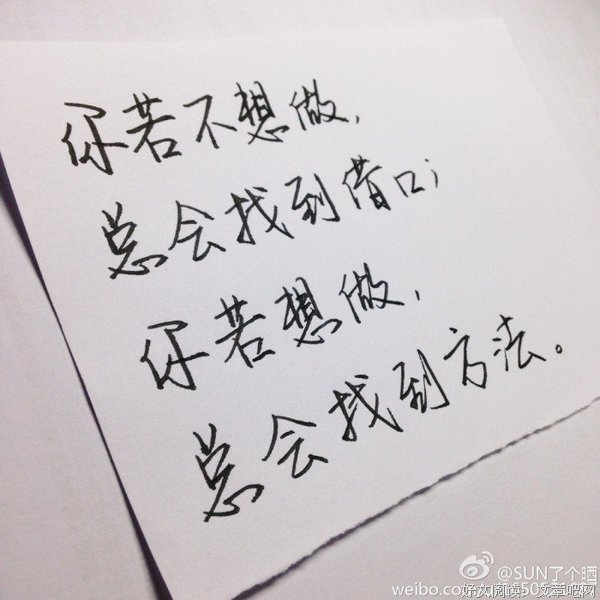 你若不想做，
总会找到借口；
你若想做，
总会找到方法。
@SUN了个晒